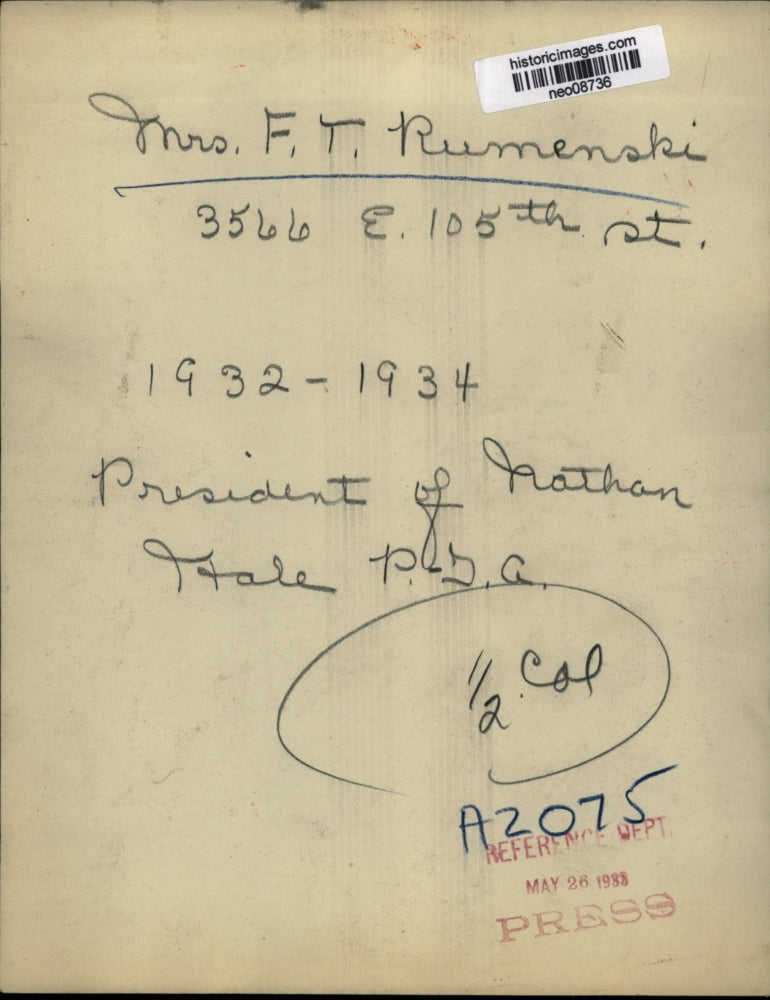 historicimages.com
neo08736
Mrs. F. T. Rumenski
3566 E. 105th st.
1932-1934
President of Nathan
Hale P.-T.A.
1/2 Col
A2075
REFERENCE DEPT.
MAY 26 1933
PRESS